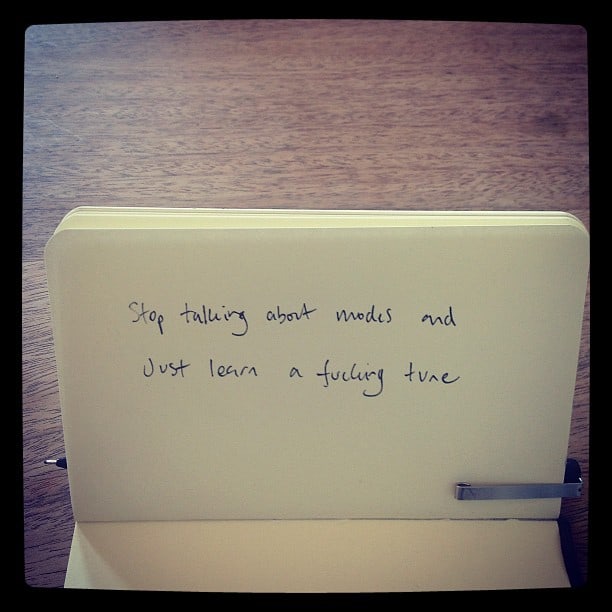 Stop talking about modes and
Just learn a fucking tune